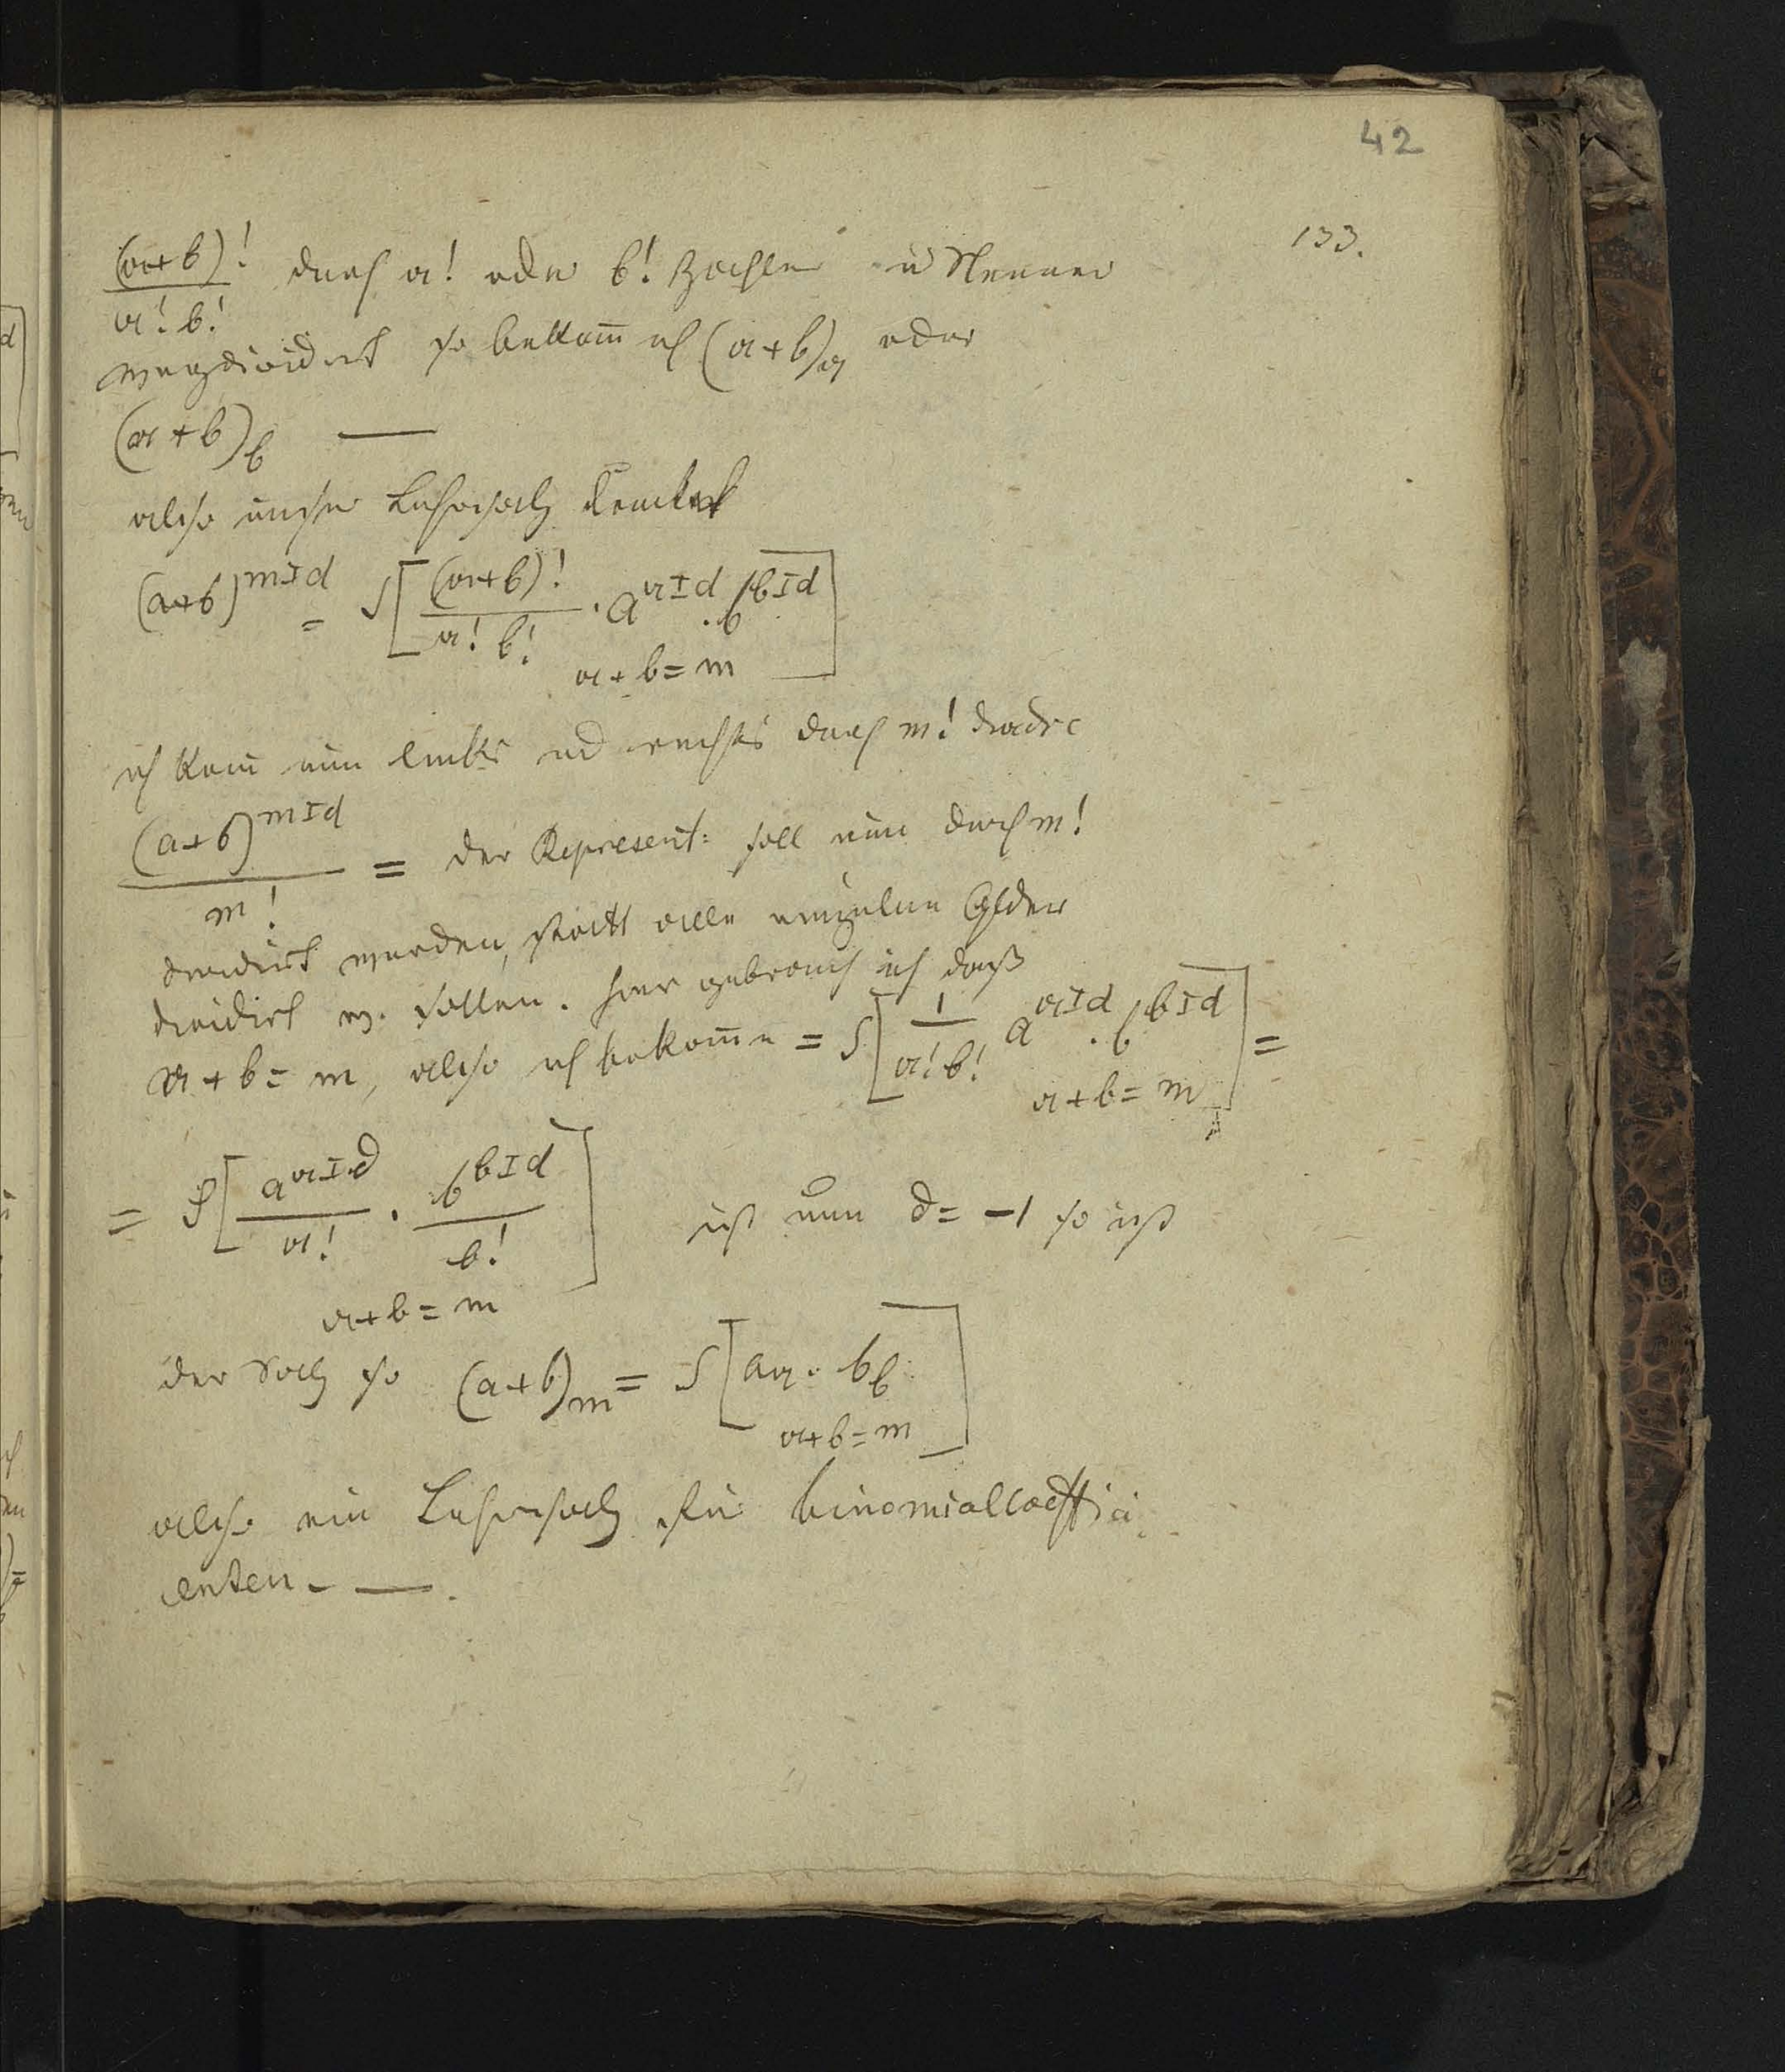 42
133.
(𝔞+𝔟)!/𝔞!𝔟! durch 𝔞! oder 𝔟! Zähler u Nenner
wegdividirt so bekkom̅ ich (𝔞+𝔟)𝔞 oder
(𝔞+𝔟)𝔟 —
also unser Lehrsatz
(a+b)^{m I d} = S[(𝔞+𝔟)!/𝔞! 𝔟! · a^{𝔞 I d} . b^{𝔟 I d}]
𝔞+𝔟=m
ich kan̅ nun links und rechts durch m!
(a+b)^{m I d}/m! = der Repräsent: soll nun durch m!
dividirt werden, statt alle einzelne Glder
dividirt w. sollen. hier gebrauch ich daß
𝔞+𝔟=m, also ich bekom̅e = S[1/𝔞!𝔟! a^{𝔞 I d} . b^{𝔟 I d}] =
𝔞+𝔟=m
= S[a^{𝔞 I d}/𝔞! . b^{𝔟 I d}/𝔟!] ist nun d= -1 so ist
𝔞+𝔟=m
der Satz so (a+b)m = S[a𝔞 . b𝔟]
𝔞+𝔟=m
also ein Lehrsatz für binomialcoeffici
enten - — .